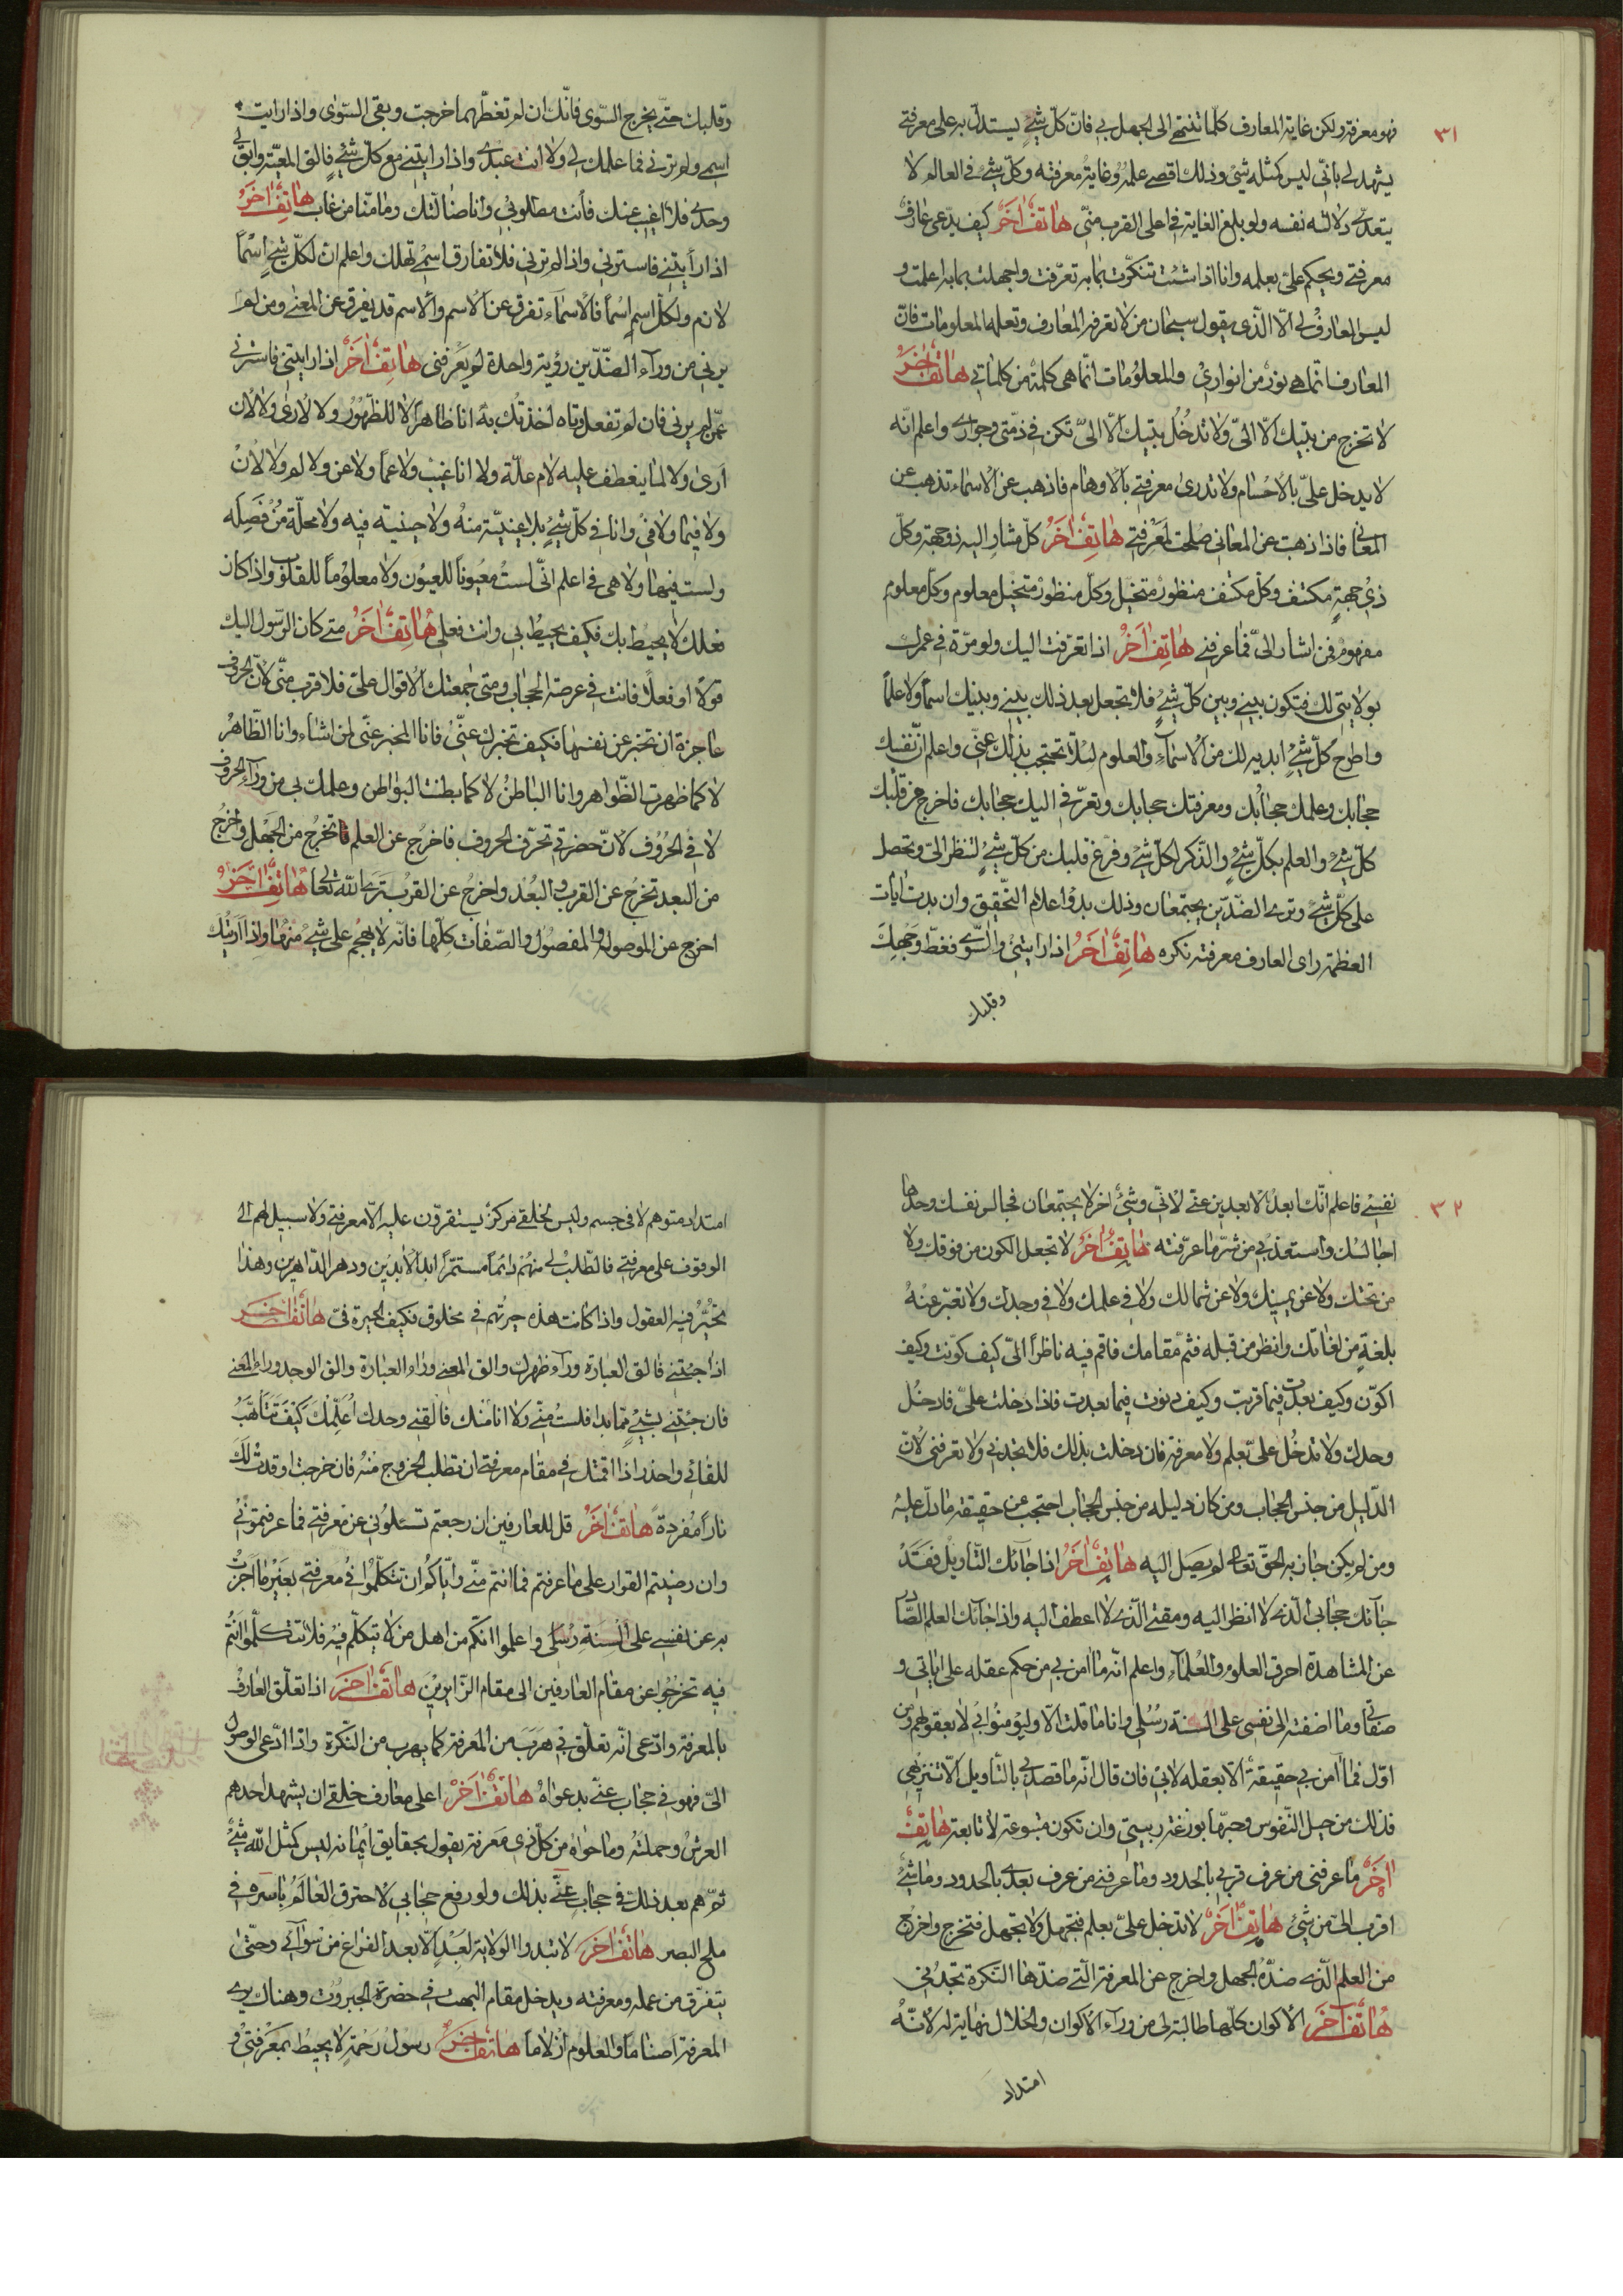 ٣١
فهو معرفة ولكن غاية المعارف كلما تنتهى الى الجهل بى فانّ كلّ شئ يستدلّ به على معرفتى
يشهد لى بانّى ليس كمثله شئ وذلك اقصى علمه وغاية معرفته وكلّ شئ فى العالم لا
يتعدّى دلالته نفسه ولو بلغ الغاية فى اعلى القرب منّى هاتف اخر كيف يدّعى عارف
معرفتى ويحكم علىّ بعلمه وانا اذا شئت تنكّرت بما به تعرّفت واجهلت بما به اعلمت و
ليس العارف لى الّا الّذى يقول سبحان من لا تعرفه المعارف وتعلمه المعلومات فانّ
المعارف انّما هى نور من انوارى والمعلومات انّما هى كلمة من كلماتى هاتف اخر
لا تخرج من بيتك الّا الىّ ولا تدخل بيتك الّا الىّ تكن فى ذمّتى وجوارى واعلم انّه
لا يدخل علىّ بالاجسام ولا تدرى معرفتى بالاوهام فاذهب عن الاسماء تذهب عن
المعانى فاذا ذهبت عن المعانى صلحت لمعرفتى هاتف اخر كلّ مشار اليه ذو جهة وكلّ
ذى جهة مكتنف وكلّ مكتنف منظور متخيل وكلّ منظور متخيل معلوم وكلّ معلوم
مفهوم فمن اشار الىّ فما عرفنى هاتف اخر اذا تعرّفت اليك ولو مرّة فى عمرك
بولايتى لك فتكون بينى وبين كلّ شئ فلا تجعل بعد ذلك بينى وبينك اسما ولا علما
واطرح كلّ شئ ابديه لك من الاسماء والعلوم لئلّا تحتجب بذلك عنّى واعلم انّ نفسك
حجابك وعلمك حجابك ومعرفتك حجابك وتعرّفى اليك حجابك فاخرج من قلبك
كلّ شئ والعلم بكلّ شئ والذّكر لكلّ شئ وفرّغ قلبك من كلّ شئ لتنظر الىّ وتحصل
على كلّ شئ وترى الضدّين يجتمعان وذلك بدؤ اعلام التّحقيق وان بدت ايات
العظمة راى العارف معرفته نكره هاتف اخر اذا رايتنى والسّوى فغطّ وجهك
وقلبك
وقلبك حتّى يخرج السّوى فانّك ان لم تغطّهما خرجت وبقى السّوى واذا رايت
اسمى ولم ترنى فما علمك لى ولا انت عبدى واذا رايتنى مع كلّ شئ فالق المعيّة وابق لى
وحدى فلا اغيب عنك فانت مطلوبى وانا ضالّتك وما منّا من غاب هاتف اخر
اذا رأيتنى فاسترنى واذا لم ترنى فلا تفارق اسمى تهلك واعلم ان لكلّ شئ اسما
لازم ولكلّ اسم اسما فالاسماء تفرق عن الاسم والاسم قد يفرق عن المعنى ومن لم
يرنى من وراء الضدّين رؤية واحدة لم يعرفنى هاتف اخر اذا رايتنى فاسترنى
عمّن لم يرنى فان لم تفعل وتاه اخذتك به انا ظاهر لا للظّهور ولا لارى ولا لان
ارى ولا لما ينعطف عليه لام علّة ولا انا غيب ولا عما ولا عن ولا لم ولا لان
ولا فيما ولا فى وانا فى كلّ شئ بلا اينيّة منه ولا حينية فيه ولا محلّة منفصله
ولست فيها ولا هى فى اعلم انّى لست معيونا للعيون ولا معلوما للقلوب واذا كان
فعلك لا يحيط بك فكيف يحيط بى وانت فعلى هاتف اخر متى كان الرّسول اليك
قولا او فعلا فانت فى عرصة الحجاب ومتى جمعتك الاقوال علىّ فلا قرب منّى لانّ الحروف
عاجزة ان تخبر عن نفسها فكيف تخبرك عنّى فانا المخبر عنّى لمن اشاء وانا الظّاهر
لا كما ظهرت الظّواهر وانا الباطن لا كما بطنت البواطن وعلمك بى من وراء الحروف
لا فى الحروف لانّ حضرتى تحرّف الحروف فاخرج عن العلم تخرج من الجهل واخرج
من البعد تخرج عن القرب و البعد واخرج عن القرب ترى الله تعالى هاتف اخر
اخرج عن الموصول والمفصول والصّفات كلّها فانّه لا يهجم على شئ منها واذا اريتك
٣٢
نفسى فاعلم انّك ابعد الابعدين عنّى لانّى وشئ اخر لا يجتمعان فجالس نفسك وحدها
اجالسك واستعذ بى من شرّ ما عرّفته هاتف اخر لا تجعل الكون من فوقك ولا
من تحتك ولا عن يمينك ولا عن شمالك ولا فى علمك ولا فى وجدك ولا تعبّر عنه
بلغة من لغاتك وانظر من قبله فثمّ مقامك فاقم فيه ناظرا الىّ كيف كوّنت وكيف
اكوّن وكيف بعدت فيما قربت وكيف دنوت فيما بعدت فاذا دخلت علىّ فادخل
وحدك ولا تدخل علىّ بعلم ولا معرفة فان دخلت بذلك فلا تجدنى ولا تعرفنى لانّ
الدّليل من جنس الحجاب ومن كان دليله من جنس الحجاب احتجب عن حقيقة ما دلّ عليه
ومن لم يكن جاذبه الحقّ تعالى لم يصل اليه هاتف اخر اذا جائك التّاويل فقد
جائك حجابى الّذى لا انظر اليه ومقتى الّذى لا اعطف اليه واذا جائك العلم الصّادر
عن المشاهدة احرق العلوم والعلماء واعلم انّه ما امن بى من حكم عقله على اياتى و
صفاتى وما اضفته الى نفسى على السنة رسلى وانا ما قلت الّا وليؤمنوا بى لا بعقولهم ومن
اوّل فما امن بى حقيقة الّا بعقله لابى فان قال انّه ما قصد بى بالتّاويل الّا تنزيهى
فذلك من حيل النّفوس وحبّها بوزغة ربيبتى وان تكون متبوعة لا تابعة هاتف
اخر ما عرفنى من عرف قربى بالحدود وما عرفنى من عرف بعدى بالحدود وما شئ
اقرب الىّ من شئ هاتف اخر لا تدخل علىّ بعلم فتجهل ولا بجهل فتخرج واخرج
من العلم الّذى ضدّه الجهل واخرج عن المعرفة الّتى ضدّها النّكرة تجدنى
هاتف اخر الاكوان كلّها طالبة لى من وراء الاكوان والخلا لا نهاية له لانّه
امتداد
امتداد متوهم لا فى جسم وليس لخلقى مركز يستقرّون عليه الّا معرفتى ولا سبيل لهم الى
الوقوف على معرفتى فالطّلب لى منهم دائما مستمرّا ابد الابدين ودهر الدّاهرين وهذا
تحيّر فيه العقول واذا كانت هذه حيرتهم فى مخلوق فكيف الحيرة فىّ هاتف اخر
اذا جئتنى فالق العبارة وراء ظهرك والق المعنى وراء العبارة والق الوجد وراء المعنى
فان جئتنى بشئ ممّا بدا فلست منّى ولا انا منك فالقنى وحدك اعلّمك كيف تتاهّب
للقائى واحذر اذا اقمتك فى مقام معرفتى ان تطلب الخروج منه فان خرجت اوقدت لك
نارا مفردة هاتف اخر قل للعارفين ان رجعتم تسئلونى عن معرفتى فما عرفتمونى
وان رضيتم القرار على ما عرفتم فما انتم منّى وايّاكم ان تتكلّموا فى معرفتى بغير ما اخبرت
به عن نفسى على السنة رسلى واعلموا انّكم من اهل من لا يتكلّم فيه فلا تتكلّموا انتم
فيه تخرجوا عن مقام العارفين الى مقام الزّايرين هاتف اخر اذا تعلّق العارف
بالمعرفة وادّعى انّه تعلّق بى هرب من المعرفة كما يهرب من النّكرة واذا ادّعى الوصول
الىّ فهو فى حجاب عنّى بدعواه هاتف اخر اعلى معارف خلقى ان يشهد احدهم
العرش وحملته وما حواه من كلّ ذى معرفة يقول بحقايق ايمانه ليس كمثل الله شئ
ثمّ هم بعد ذلك فى حجاب عنّى بذلك ولو رفع حجابى لاحترق العالم باسره فى
ملح البصر هاتف اخر لا تبدوا الولاية لعبد الّا بعد الفراغ من سوائى وحتّى
يتفرّق من علمه ومعرفته ويدخل مقام البهت فى حضرة الجبروت وهناك يرى
المعرفة اصناما والعلوم ازلاما هاتف اخر رسول رحمة لا يحيط بمعرفتى و